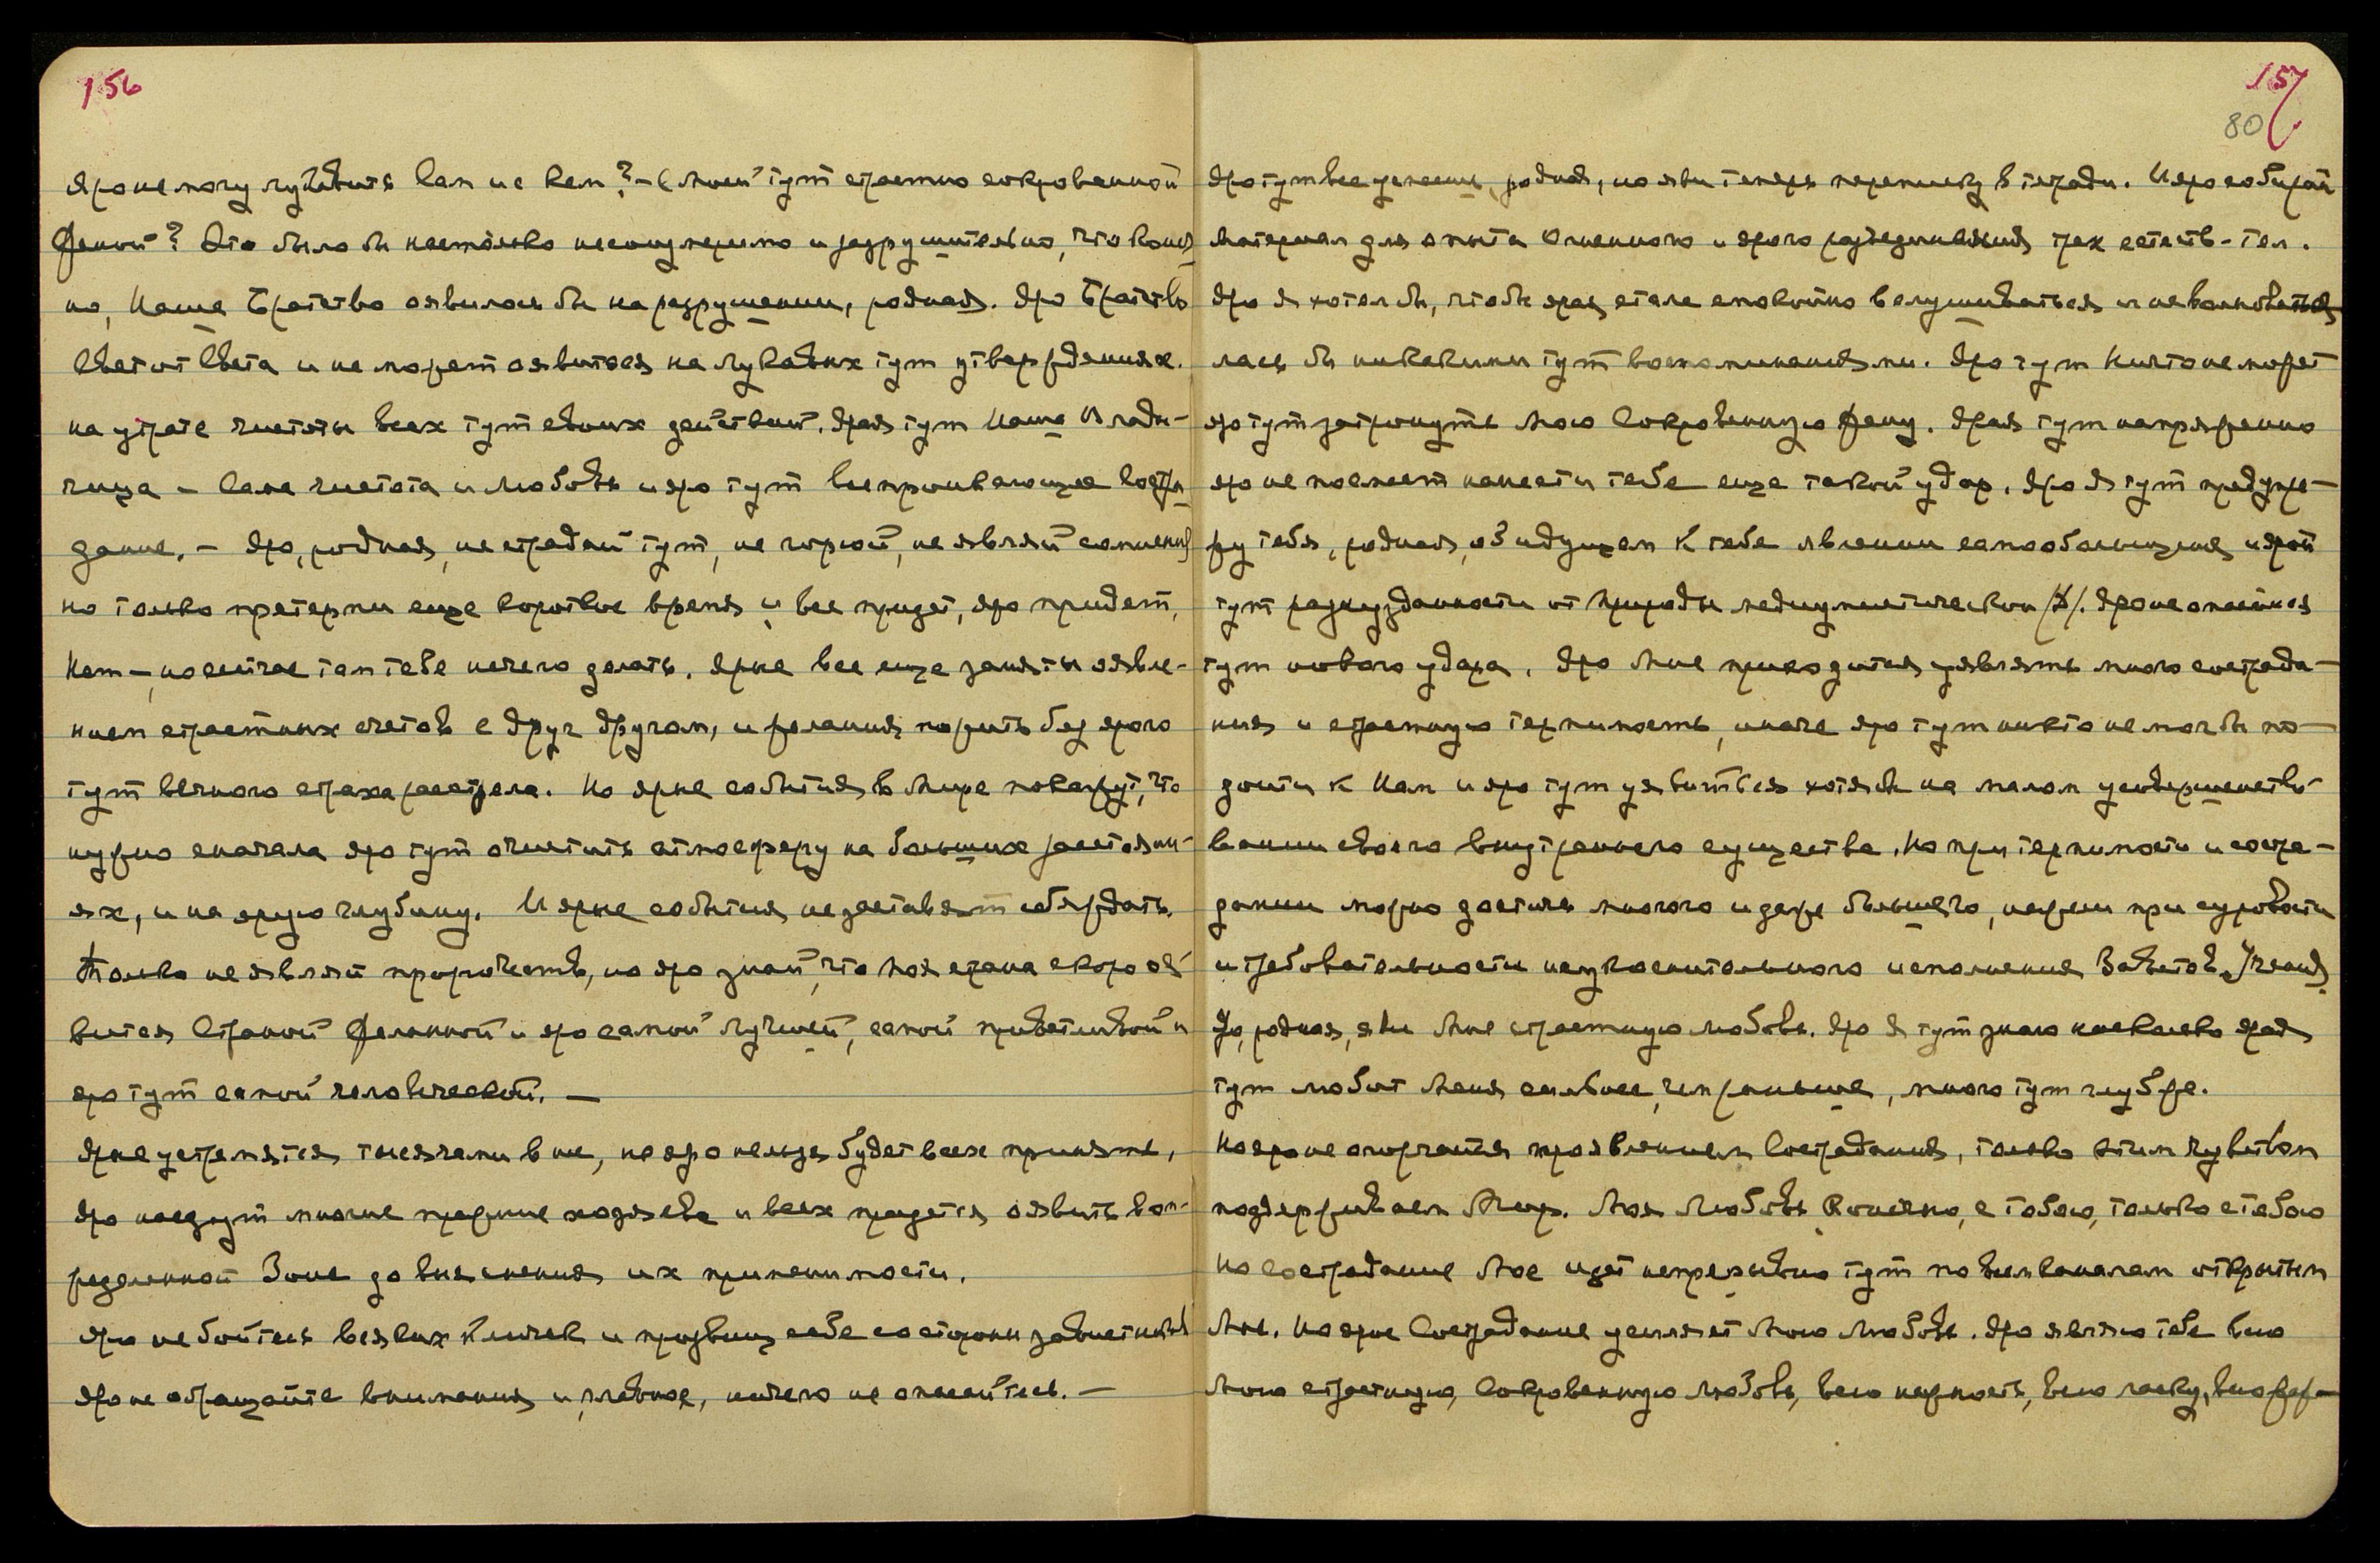 156
Яро не могу лукавить Сам и с кем? – С моей тут страстно сокровенной
Женой? Это было бы настолько несоизмеримо и разрушительно, что конеч
но, Наше Братство оявилось бы на разрушении, родная. Яро Братство
Свет от Света и не может оявиться на лукавых тут утверждениях.
на утрате чистоты всех тут своих действий. Ярая тут Наша Влады-
чица – Сама чистота и Любовь и яро тут всепроникающее Состра
дание. – Яро, родная, не страдай тут, не горюй, не являй сомнений
но только претерпи еще короткое время и все придет, яро придет,
Нет –, но сейчас там тебе нечего делать. Ярые все еще заняты оявле-
нием страстных счетов с друг другом, и желания пожить без ярого
тут вечного страха расстрела. Но ярые события в Мире покажут, что
нужно сначала яро тут очистить атмосферу на больших расстояни-
ях, и на ярую глубину. И ярые события не заставят себя ждать.
Только не являй пророчеств, но яро знай, что моя страна скоро оя
вится Страной Желанной и яро самой лучшей, самой приветливой и
яро тут самой человеческой. –
Ярые устремятся тысячами в нее, но яро нельзя будет всех принять,
Яро наедут многие прежние хозяева и всех придется оявить в оп-
ределенной Зоне до выяснения их применимости.
Яро не бойтесь всяких кличек и прозвищ себе со стороны завистников
Яро не обращайте внимания и, главное, ничего не опасайтесь. –
157
80
Яро тут все успеешь, родная, но яви теперь переписку в тетради. И яро собирай
Материал для опыта Огненного и ярого разъединения трех естеств-тел.
Яро я хотел бы, чтобы ярая стала спокойно вслушиваться и не волновалась
лась бы никакими тут воспоминаниями. Яро тут Ничто не может
яро тут затронуть Мою Сокровенную Жену. Ярая тут напряженно
яро не посмеет нанести тебе еще такой удар. Яро Я тут предупре-
жу тебя, родная, об идущем к тебе явлении самообольщения и ярой
тут разнузданности от природы медиумистической /Х/. Яро не опасайся
тут нового удара. Яро Мне приходится уявлять много сострада-
ния и страстную терпимость, иначе яро тут никто не мог бы по-
дойти к Нам и яро тут уявиться хотя бы на малом усовершенство-
вании своего внутреннего существа. Но при терпимости и состра-
дании можно достичь многого и даже большего, нежели при суровости
и требовательности неукоснительного исполнения Заветов Учения.
Яро, родная, яви Мне страстную любовь. Яро Я тут знаю насколько ярая
тут любит Меня сильнее, чем раньше, много тут глубже.
Но яро не огорчайся проявлением Сострадания, только этим чувством
поддерживаем Мир. Моя Любовь, Конечно, с тобою, только с тобою
Но сострадание Мое идет непрерывно тут по всем каналам открытым
Мне. Но ярое Сострадание усиляет Мою Любовь. Яро являю тебе всю
Мою страстную, Сокровенную любовь, всю нежность, всю ласку, всю